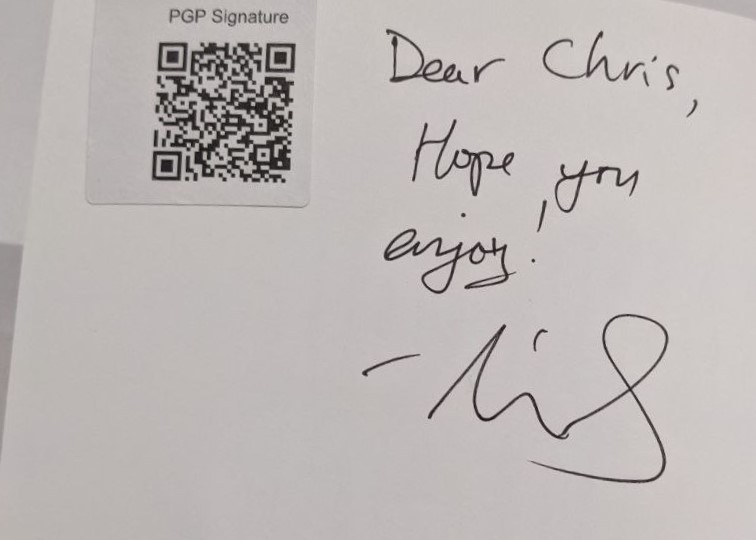 PGP Signature
Dear Chris,
Hope you
enjoy!